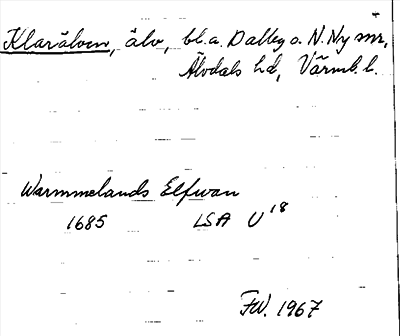 Klarälven, älv, bl.a. Dalby o. N. Ny snr,
Älvdals hd, Värml. l.
Warmmelands Elfwan
1685 LSA U18
FW. 1967